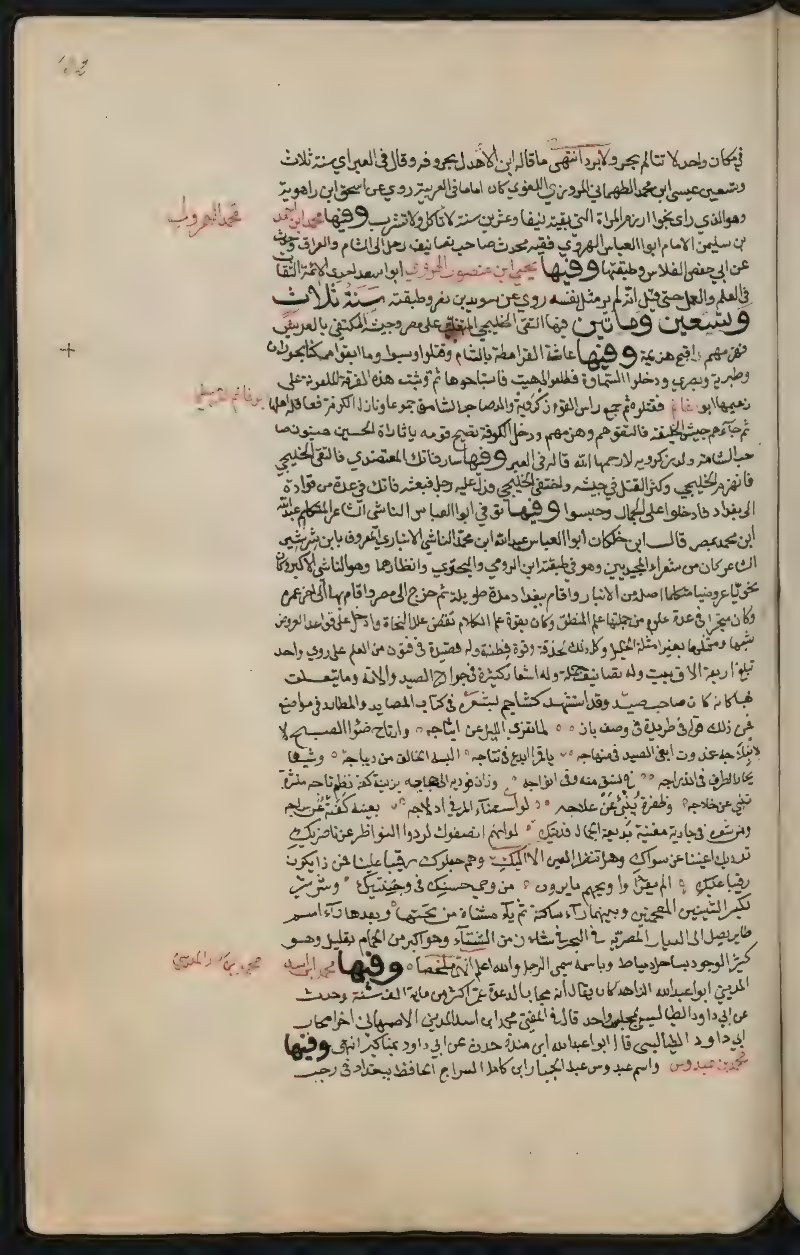 في مكان واحد لا تتالم بحر ولا برد انتهى ما قاله ابن الاهدل بحروفه وقال في العبر اي سنة ثلاث
وتسعين عيسى ابن محمد الطهماني المروزي اللغوي كان اماما في العربية روي عن اسحق ابن راهوية
وهو الذي راى بخوارزم المراة التي بقيت نيفا وعشرين سنة لا تاكل ولا تشرب وفيها محمد ابن احمد
بن سليمن الامام ابو العباس الهروي فقيه محدث صاحب تصانيف رحل الى الشام والعراق وحدث
عن ابي حفص الفلاس وطبقته وفيها يحيى ابن منصور الهروي ابو سعد احد الائمة الثقات
في العلم والعمل حتى قيل انه لم ير مثل نفسه روي عن سويد بن نصر وطبقته سنة ثلاث
وتسعين وماتين فيها التقى الخليجي المتغلب على مصر وجيش المكتفي بالعريش
فهزمهم اقبح هزيمة وفيها عاثت القرامطة بالشام وقتلوا وسبوا وما ابقوا ممكنا بحوران
وطبرية وبصرى ودخلوا السماوة فطلعوا الى هيت فاستباحوها ثم وثبت هذه الفرقة الملعونة على
زعيمها ابو غانم فقتلوه ثم جمع راس القوم زكرويه والد صاحب الشامة جموعا ونازل الكوفة فقاتله اهلها
ثم جاءهم جيش الخليفة فالتقوهم وهزمهم ودخل الكوفة يصيح قومه يا ثارات الحسين يعنون صا
حب الشامة ولد زكرويه لا رحمها الله قاله في العبر وفيها سار فاتك المعتضدي فالتقى الخليجي
فانهزم الخليجي وكثر القتل في جيشه واختفى الخليجي فدل عليه رجل فبعثه فاتك في عدة من قواده
الى بغداد فادخلوا على الجمال وحبسوا وفيها توفي ابو العباس الناشي الشاعر المتكلم عبد الله
ابن محمد بمصر قال ابن خلكان ابو العباس عبد الله ابن محمد الناشي الانباري المعروف بابن شرشير
الشاعر كان من شعراء المجيدين وهو في طبقة ابن الرومي والبحتري وانظارهما وهو الناشي الاكبر وكان
نحويا عروضيا متكلما اصله من الانبار واقام ببغداد مدة طويلة ثم خرج الى مصر واقام بها الى اخر عمره
وكان متبحرا في عدة علوم من جملتها علم المنطق وكان بقوة علم الكلام نقض علل النحاة وادخل على قواعد العروض
شبها ومثلها بغير امثلة الخليل وكل ذلك بحذقه وقوة فطنته وله قصيدة في فنون من العلم على روي واحد
تبلغ اربعة الاف بيت وله تصانيف جميلة وله اشعار كثيرة في جوارح الصيد والاته وما يتعلق
بها كانه كان صاحب صيد وقد استشهد كشاجم بشعره في كتاب المصايد والمطارد في مواضع
فمن ذلك قوله في طريدة في وصف باز لما تفرى الليل عن اثباجه وارتاح ضوء الصبح لا
نبلاجه غدوت ابغي الصيد في منهاجه باقمر ابدع في نتاجه البسه الخالق من ديباجه وشيا
يحار الطرف في اندراجه في نسق منه وفي انعراجه وزان فوديه الى حجاجه بزينة كفته نظم تاجه منسره
ينبي عن خلاجه وظفره ينبئ عن علاجه لو استضاء المرء في ادلاجه بعينه كفته عن سراجه
ومن شعره في جارية مغنية بديعة الجمال فديتك لو انهم انصفوك لردوا النواظر عن ناظريك
تردين اعيننا عن سواك وهل تنظر العين الا اليك وهم جعلوك رقيبا علينا فمن ذا يكون
رقيبا عليك الم يقراوا ويحهم ما يرون من وحي حسنك في وجنتيك وشرشير
بكسر الشينين المعجمتين وبينهما راء ساكنة ثم ياء مثناة من تحتها وبعدها راء اسم
طاير يصل الى الديار المصرية في البحر في زمن الشتاء وهو اكبر من الحمام بقليل وهو
كثير الوجود بساحل دمياط وباسمه سمي الرجل والله اعلم انتهى ملخصا وفيها محمد ابن اسد
المديني ابو عبد الله الزاهد كان يقال انه مجاب الدعوة عمر اكثر من ماية سنة وحدث
عن ابي داود الطيالسي بمجلس واحد قال في المغني محمد ابن اسد المديني الاصبهاني اخر اصحاب
ابي داود الطيالسي قال ابو عبد الله ابن مندة حدث عن ابي داود بمناكير انتهى وفيها
محمد بن عبدوس واسم عبدوس عبد الجبار ابن كامل السراج الحافظ ببغداد في رجب
محمد الهروي